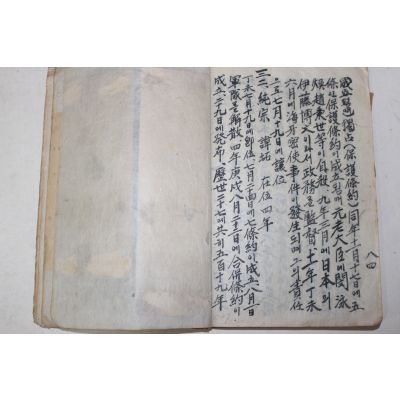 成立되야獨占(保護條約)同年十一月十七日에五
條로保護條約이成立되매元老大臣에閔泳
煥趙秉世等이自殺九年二月에日本의
伊藤博文이와서政務를監督十一年丁未
六月에海牙密使事件이發生되매그의責任
으로七月十九日에讓位
三二、純宗 諱坧 在位四年
丁未七月十九日에卽位七月二十四日에七條約이成立八月一日
軍隊를解散四年庚戌八月二十二日에合倂條約이
成立二十九日에發布、歷世二十七에共히五百十九年
八四